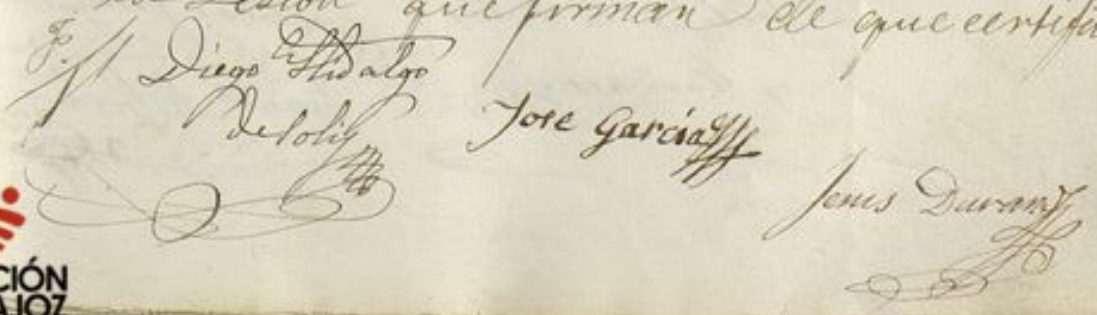 sesion que firman de que certifi
F. Diego Hidalgo
de Solis
Jose Garcia
Jesus Duran
CIÓN
AJOZ